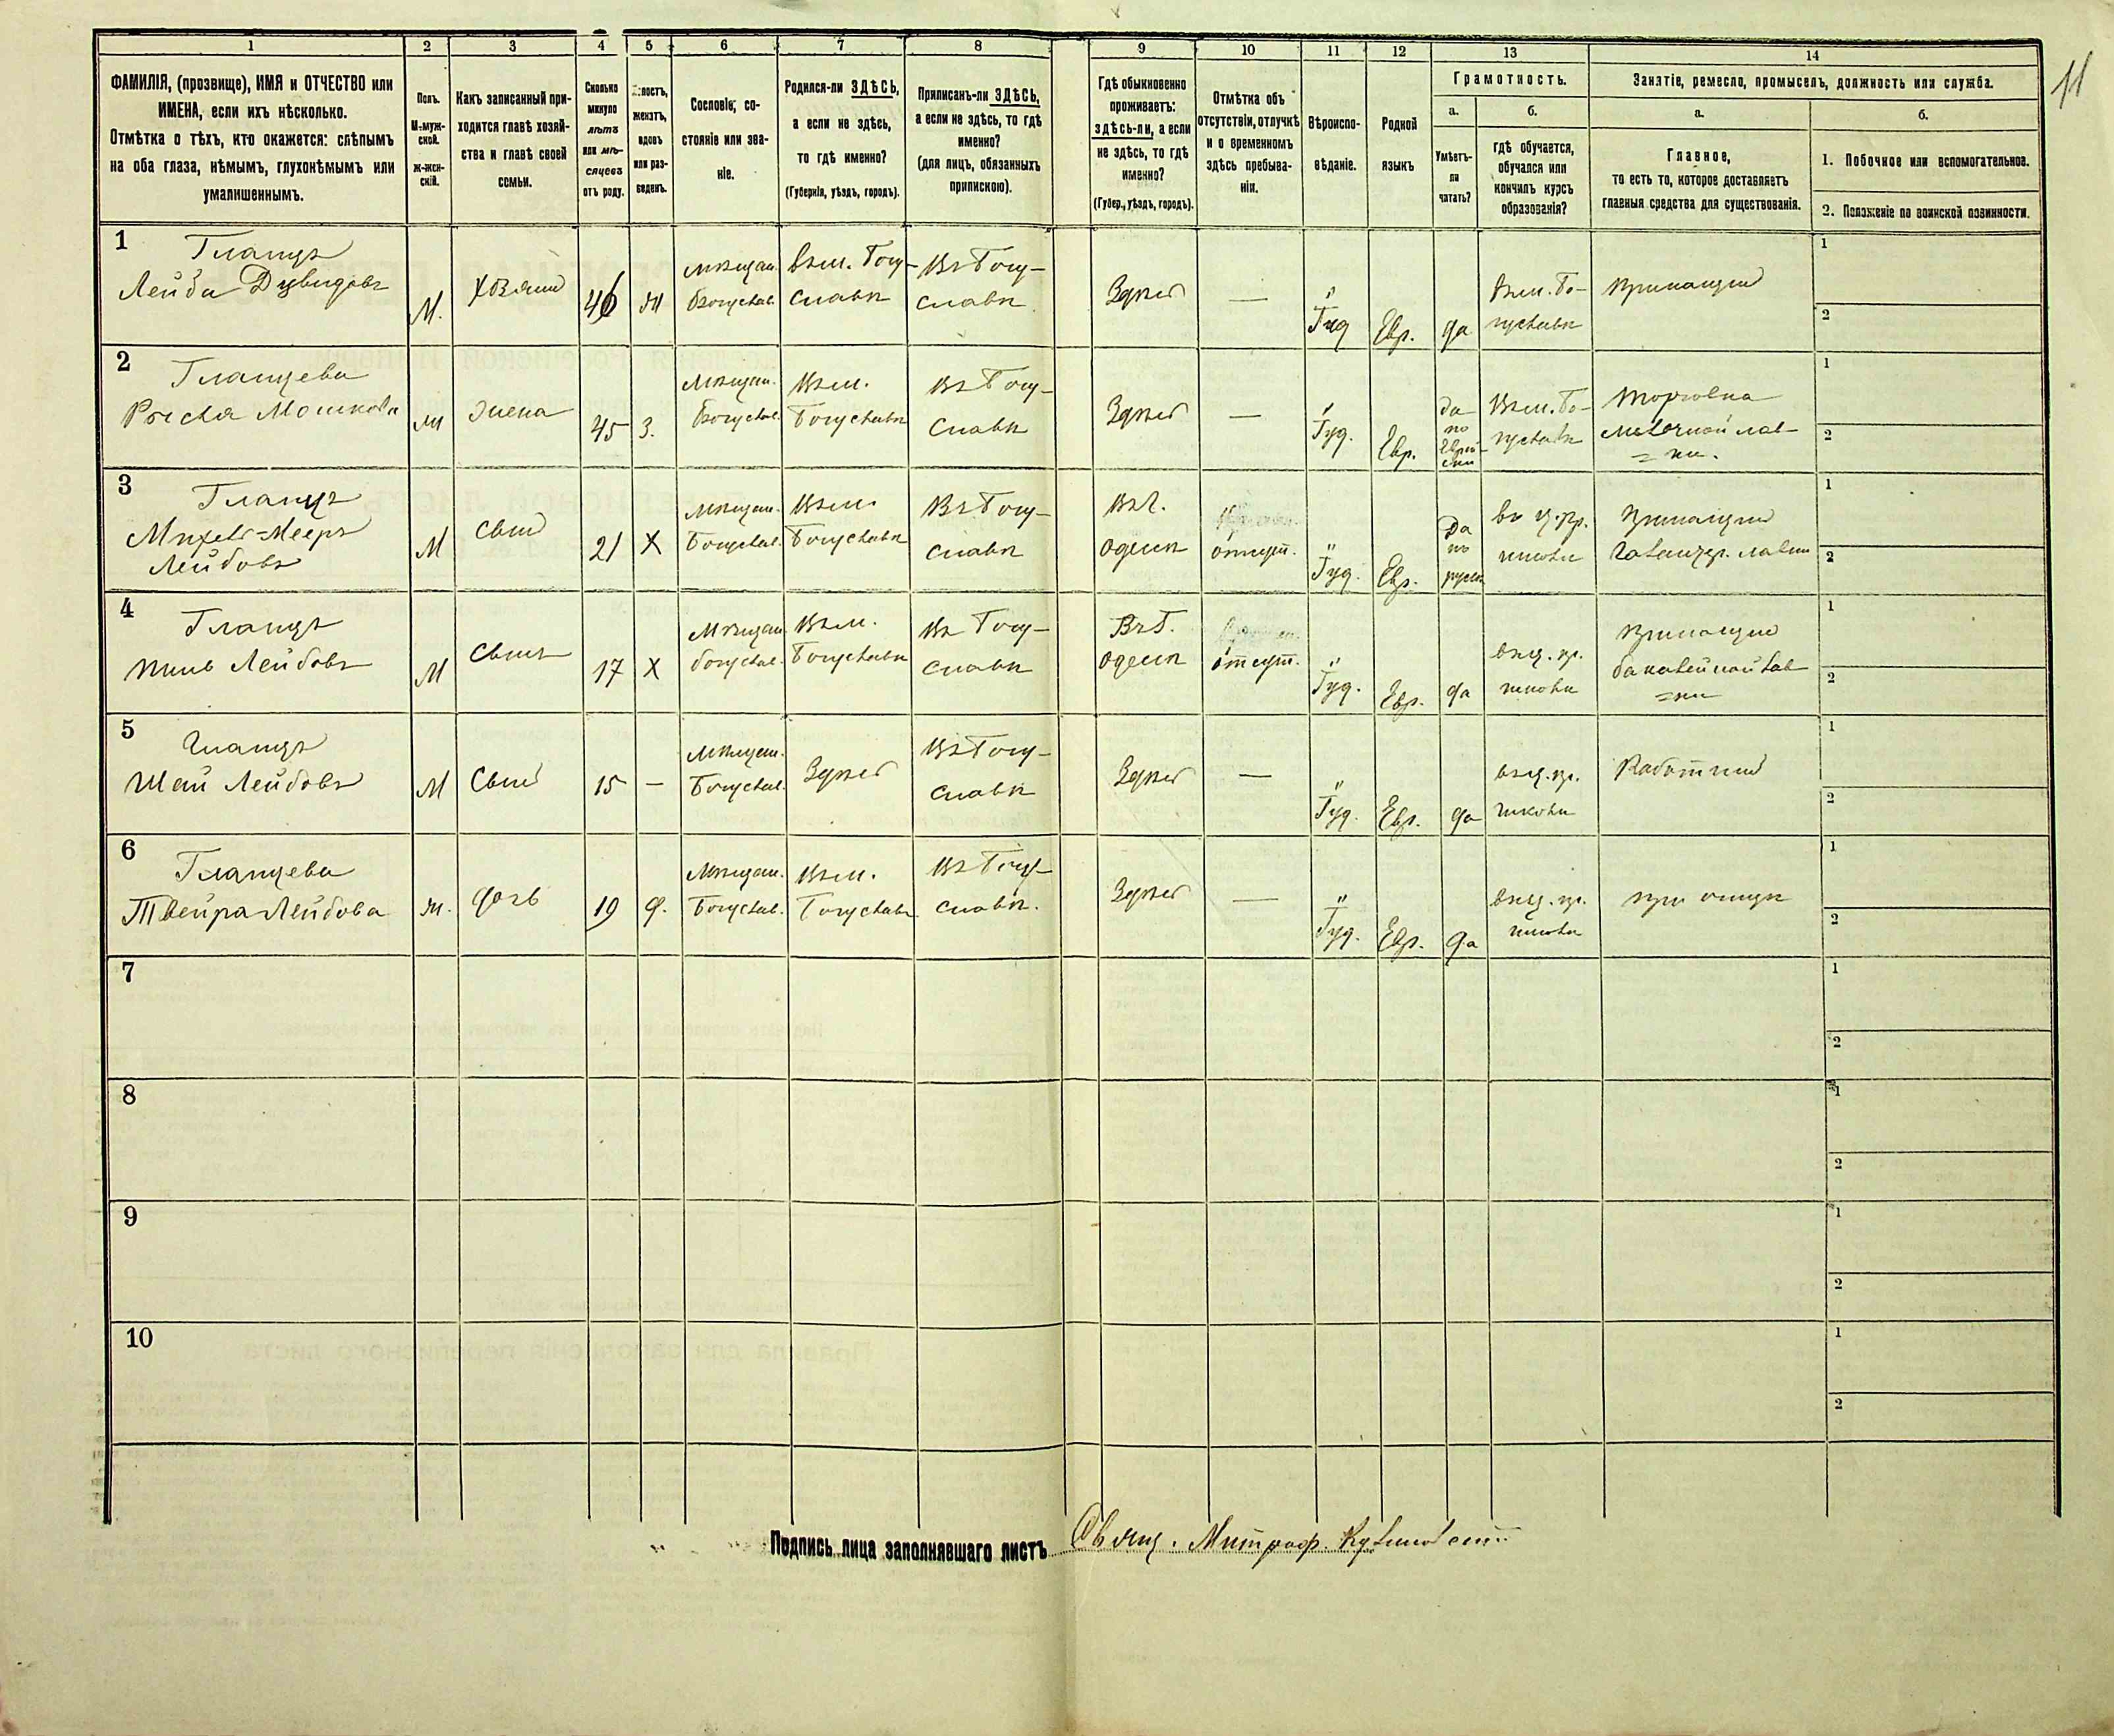 11
1 2 3 4 5 6 7 8 9 10 11 12 13 14
ФАМИЛІЯ, (прозвище), ИМЯ и ОТЧЕСТВО или
ИМЕНА, если ихъ нѣсколько.
Отмѣтка о тѣхъ, кто окажется: слѣпымъ
на оба глаза, нѣмымъ, глухонѣмымъ или
умалишеннымъ.
Полъ.
М-муж-
ской.
ж-жен-
скій.
Какъ записанный при-
ходится главѣ хозяй-
ства и главѣ своей
семьи.
Сколько
минуло
лѣтъ
или мѣ-
сяцевъ
отъ роду.
женатъ,
вдовъ
или раз-
веденъ.
Сословіе, со-
стояніе или зва-
ніе.
Родился-ли ЗДѢСЬ,
а если не здѣсь,
то гдѣ именно?
(Губернія, уѣздъ, городъ).
Приписанъ-ли ЗДѢСЬ,
а если не здѣсь, то гдѣ
именно?
(для лицъ, обязанныхъ
припискою).
Гдѣ обыкновенно
проживаетъ:
здѣсь-ли, а если
не здѣсь, то гдѣ
именно?
(Губер., уѣздъ, городъ).
Отмѣтка объ
отсутствіи, отлучкѣ
и о временномъ
здѣсь пребыва-
ніи.
Вѣроиспо-
вѣданіе.
Родной
языкъ
Грамотность.
а.
Умѣетъ-
ли
читать?
б.
гдѣ обучается,
обучался или
кончилъ курсъ
образованія?
Занятіе, ремесло, промыселъ, должность или служба.
а.
Главное,
то есть то, которое доставляетъ
главныя средства для существованія.
б.
1. Побочное или вспомогательное.
2. Положеніе по воинской повинности.
1
Гланцъ
Лейба Дувидовъ
М.
хозяин
46
Мѣщан.
Богуслав.
въ м. Богу-
славѣ
Въ Богу-
славѣ
Здѣсь
—
Іуд
Евр.
да
Въ м. Бо-
гуславѣ
Приказчик
2
Гланцева
Рыся Мошкова
жена
45
З.
Мѣщан.
Богуслав.
Въ м.
Богуславѣ
Въ Богу-
славѣ
Здѣсь
—
Іуд.
Евр.
да
по
Еврей-
ски
Въ м. Бо-
гуславѣ
Торговка
мелочной лав-
= ки.
3
Гланцъ
Михель=Мееръ
Лейбовъ
М
Сын
21
Х
Мѣщан.
Богуслав.
Въ м.
Богуславѣ
Въ Богу-
славѣ
Въ г.
Одессѣ
отсут.
Іуд.
Евр.
Да
по
русск
Приказчик
Галантер. лавки
4
Гланцъ
Лейбовъ
М
Сынъ
17
Х
Мѣщан.
Богуслав.
Въ м.
Богуславѣ
Въ Богу-
славѣ
Въ г.
Одессѣ
отсут.
Іуд.
Евр.
да
Приказчик
бакалейной лав
=ки
5
Гланцъ
Шая Лейбовъ
М
Сын
15
—
Мѣщан.
Богуслав.
Здѣсь
Въ Богу-
славѣ
Здѣсь
—
Іуд.
Евр.
да
Работник
6
Гланцева
Твейра Лейбова
ж.
дочь
19
д.
Мѣщан.
Богуслав.
Въ м.
Богуславѣ
Въ Богу-
славѣ.
Здѣсь
—
Іуд.
Евр.
да
при отцѣ
7
8
9
10
Подпись лица заполнявшаго листъ
Свящ. Митроф.